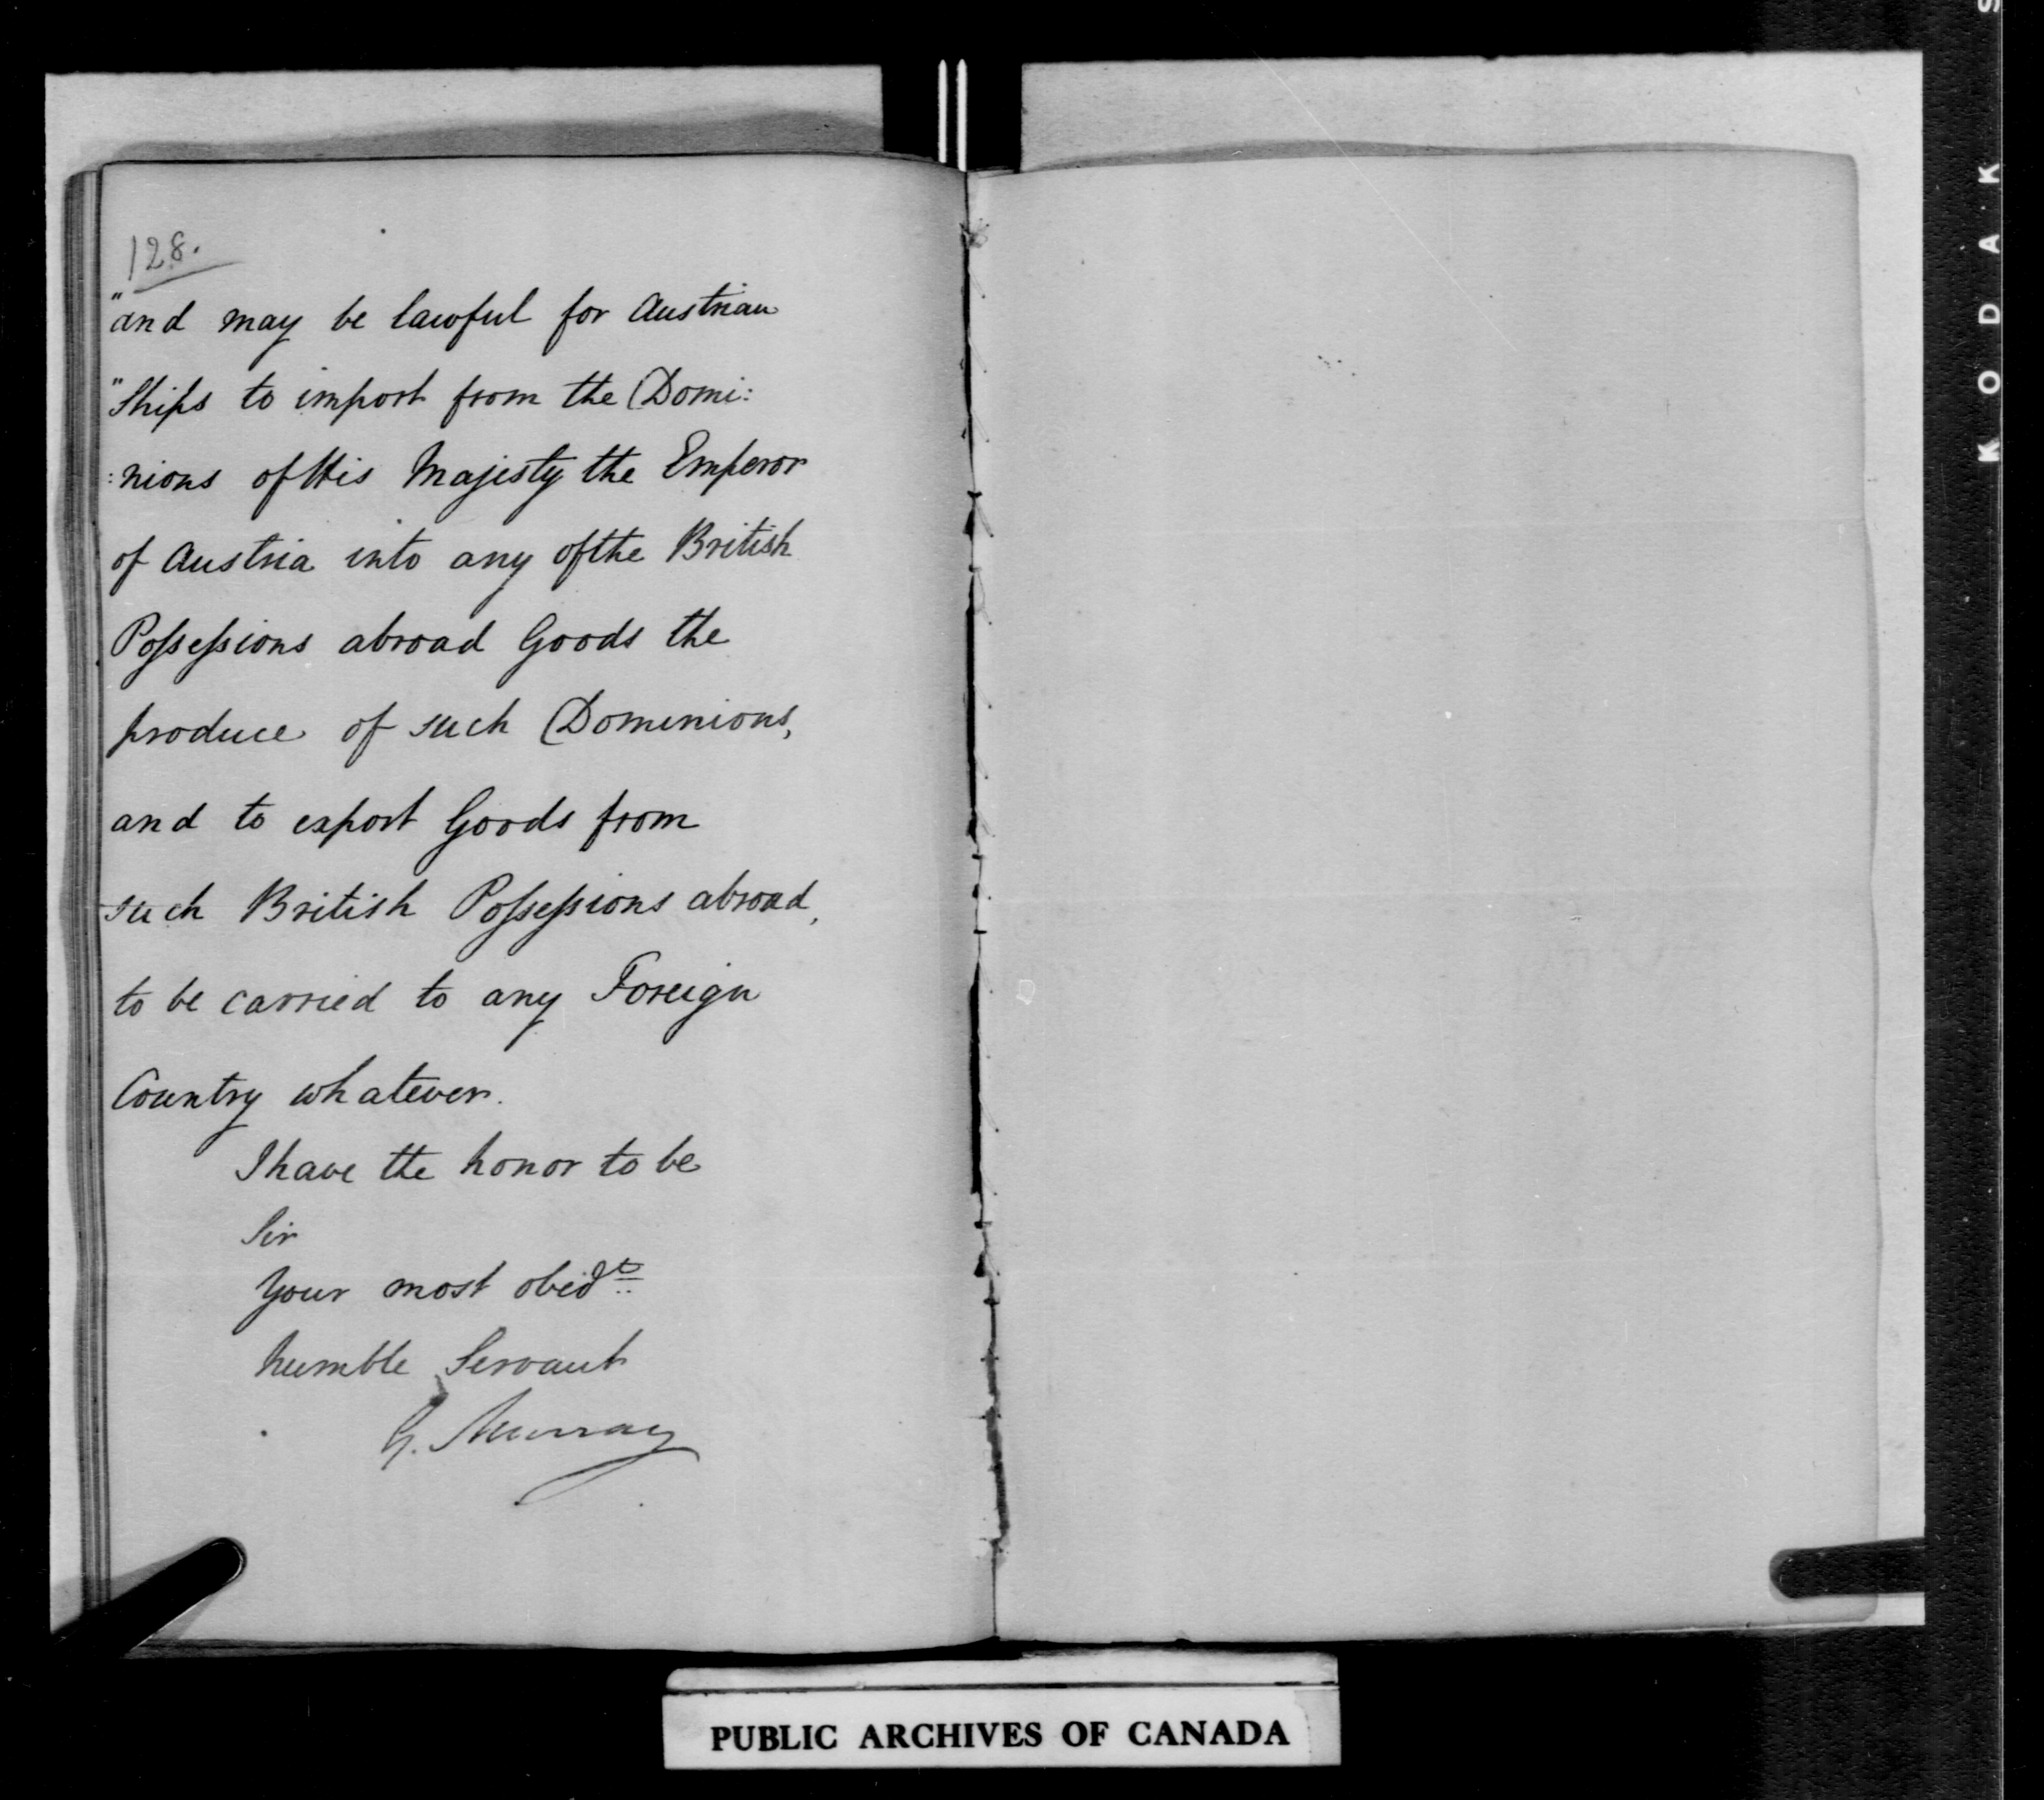 128.
"and may be lawful for Austrian
"Ships to import from the Domi:
:nions of His Majesty the Emperor
of Austria into any of the British
Possessions abroad Goods the
produce of such Dominions,
and to export Goods from
such British Possessions abroad,
to be carried to any Foreign
Country whatever.
I have the honor to be
Sir
Your most obedt
humble Servant
G. Murray
PUBLIC ARCHIVES OF CANADA
KODAK S